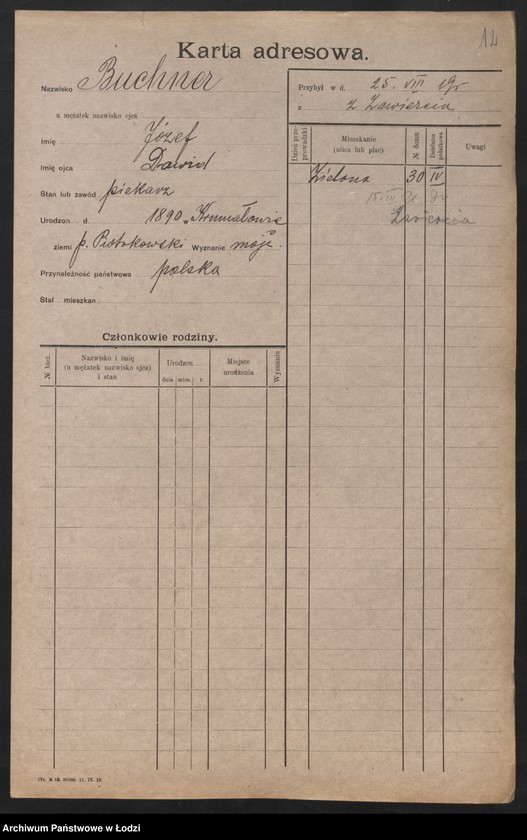 12
Karta adresowa.
Nazwisko Buchner
u mężatek nazwisko ojca
Imię Józef
Imię ojca Dawid
Stan lub zawód piekarz
Urodzon d. 1890 w Kromołowie
ziemi p. Piotrkowski Wyznanie mojż.
Przynależność państwowa polska
Stał mieszkan
Przybył w d. 25. VIII 19 r
z z Zawiercia
Dzień przeprowadzki
Mieszkanie
(ulica lub plac)
№ domu
Dzielnica podatkowa
Uwagi
Zielona 30 IV
15 IV 21 do
Zawiercia
Członkowie rodziny.
№ bież.
Nazwisko i imię
(u mężatek nazwisko ojca)
i stan
Urodzon
dnia mies. r.
Miejsce
urodzenia
Wyznanie
Archiwum Państwowe w Łodzi